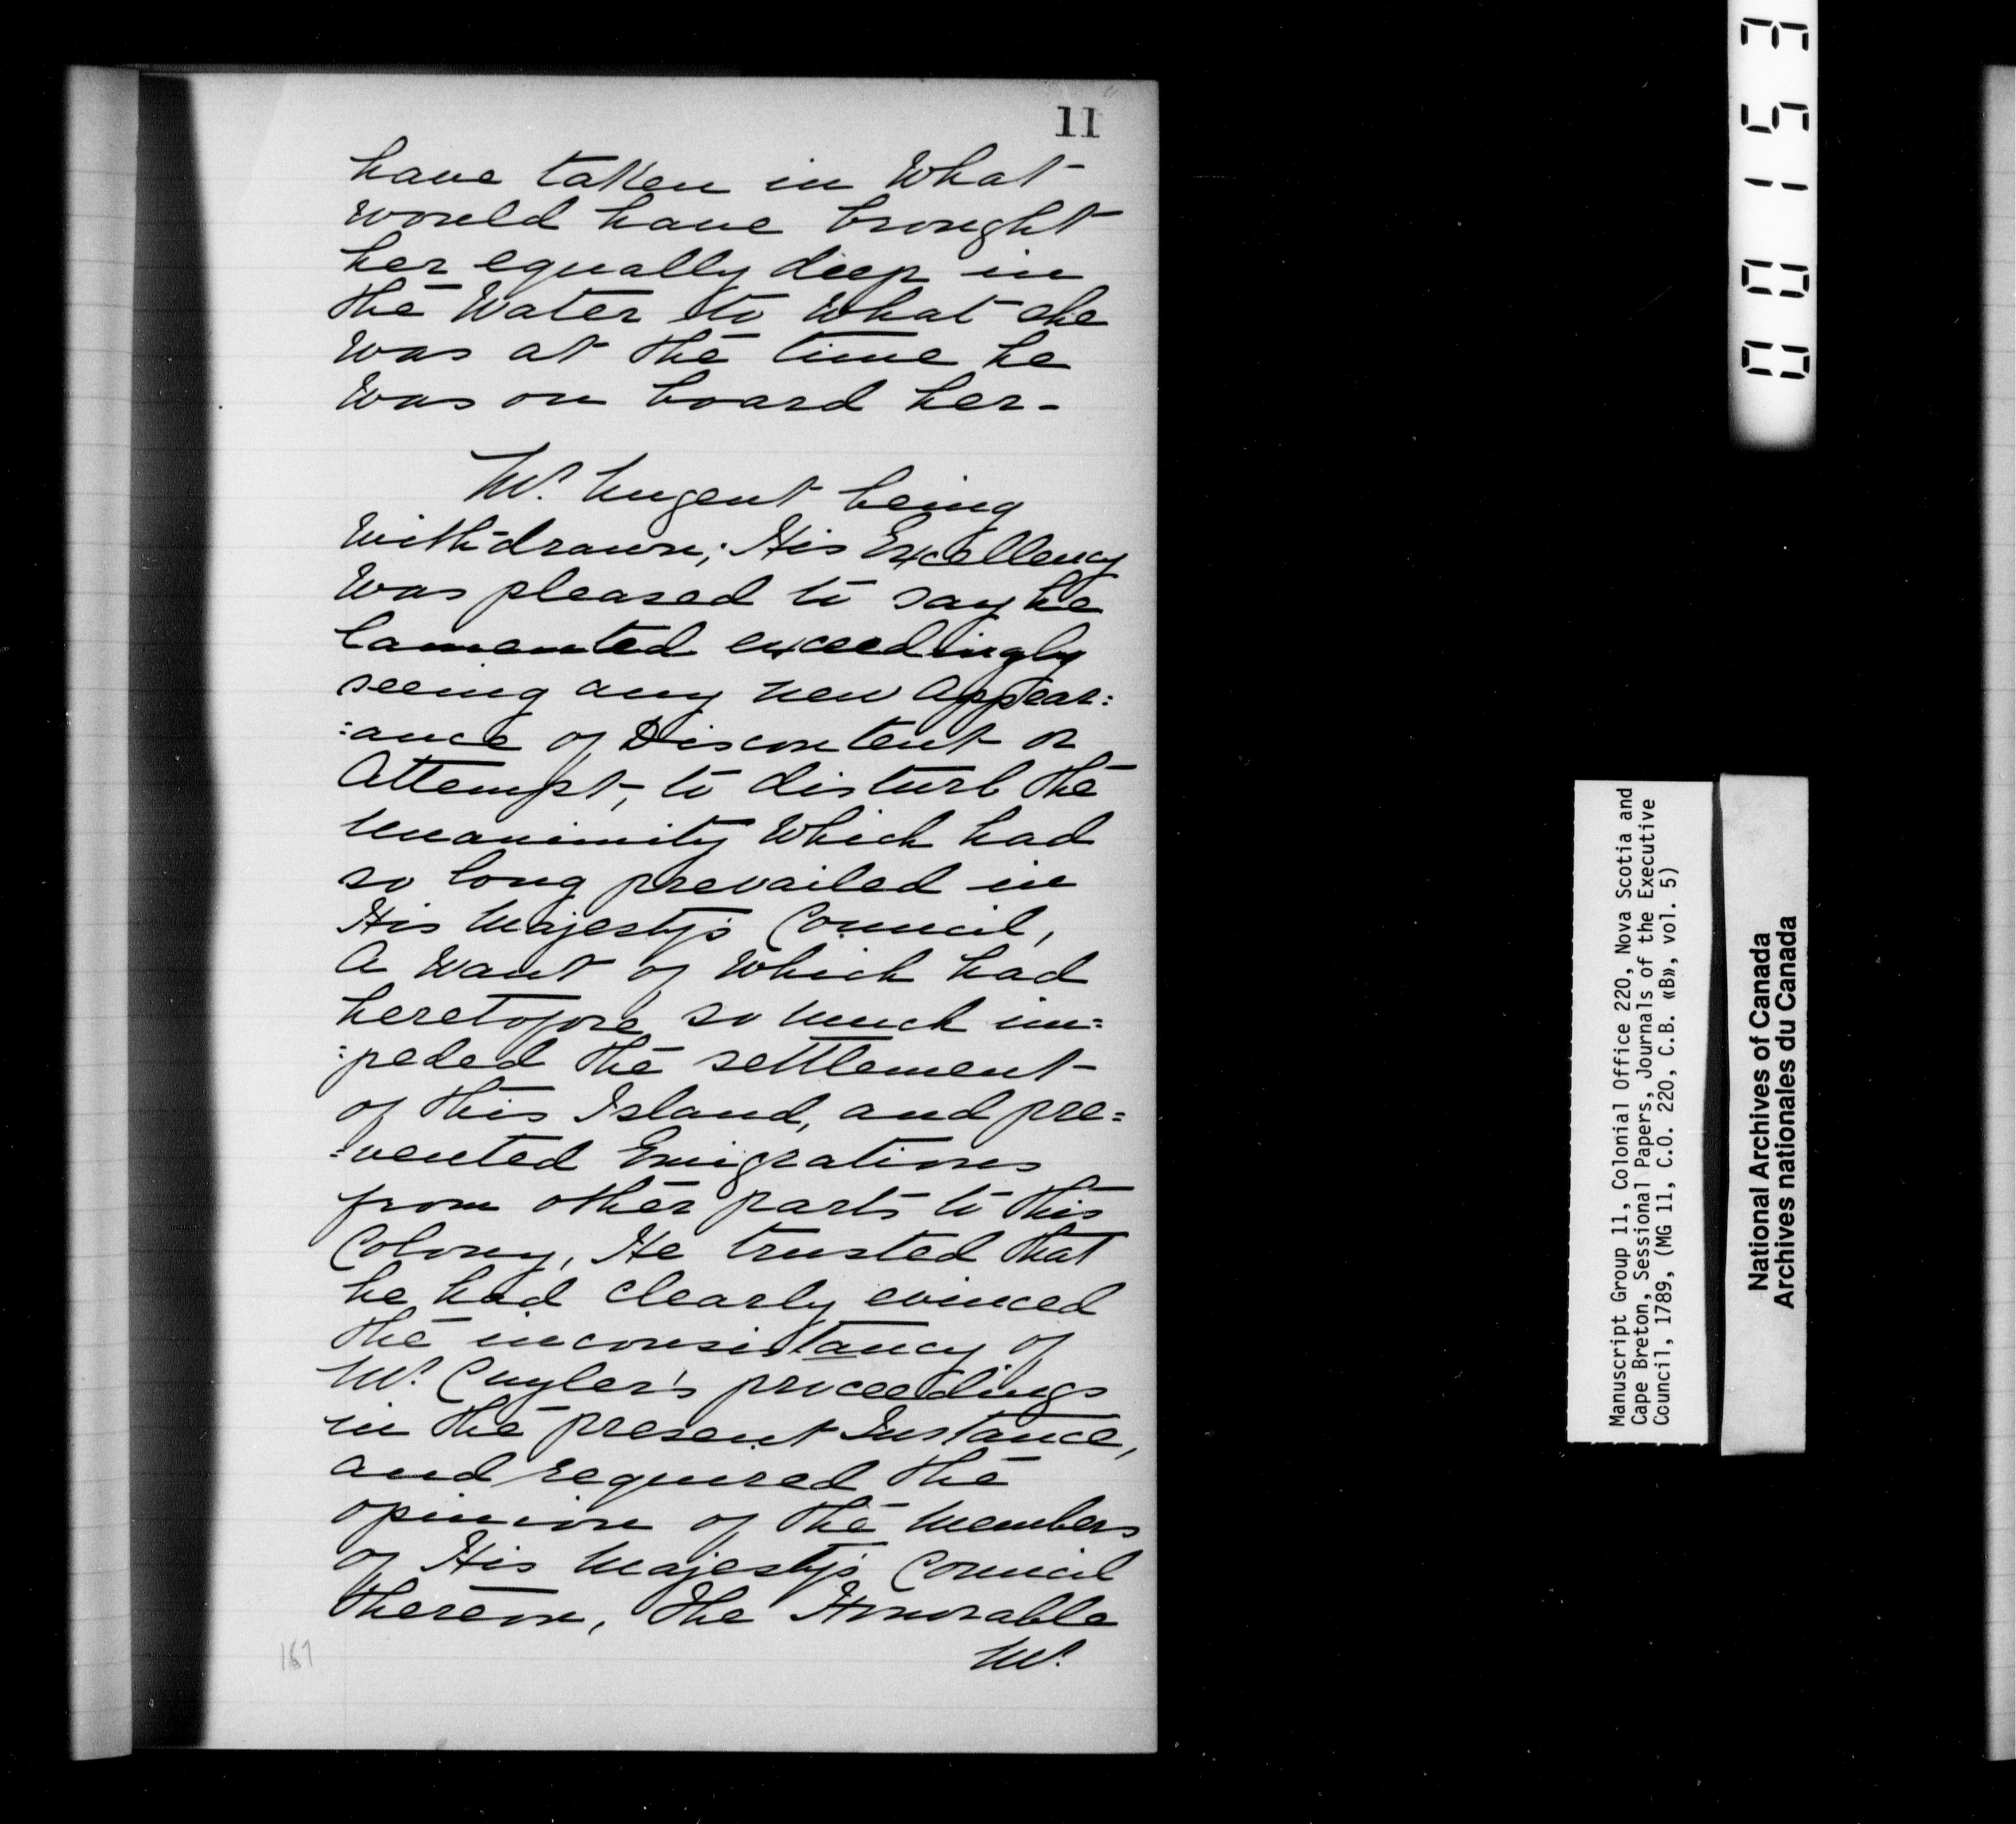 11
have taken in What
would have brought
her equally deep in
the Water to What she
was at the time he
was on board her-
Mr. Nugent being
withdrawn; His Excellency
was pleased to say he
lamented exceedingly
seeing any new Appear:
:ance of Discontent or
Attempt, to disturb the
Unanimity Which had
so long prevailed in
His Majesty's Council,
A want of Which had
heretofore so much im=
:peded the settlement
of this Island, and pre=
:vented Emigrations
from other parts to this
Colony, He trusted that
he had clearly evinced
the inconsistancy of
Mr. Cuyler's proceedings
in the present Instance,
and required the
opinion of the Members
of His Majesty's Council
thereon, The Honorable
Mr.
167
00153
Manuscript Group 11, Colonial Office 220, Nova Scotia and
Cape Breton, Sessional Papers, Journals of the Executive
Council, 1789, (MG 11, C.O. 220, C.B. «B», vol. 5)
National Archives of Canada
Archives nationales du Canada